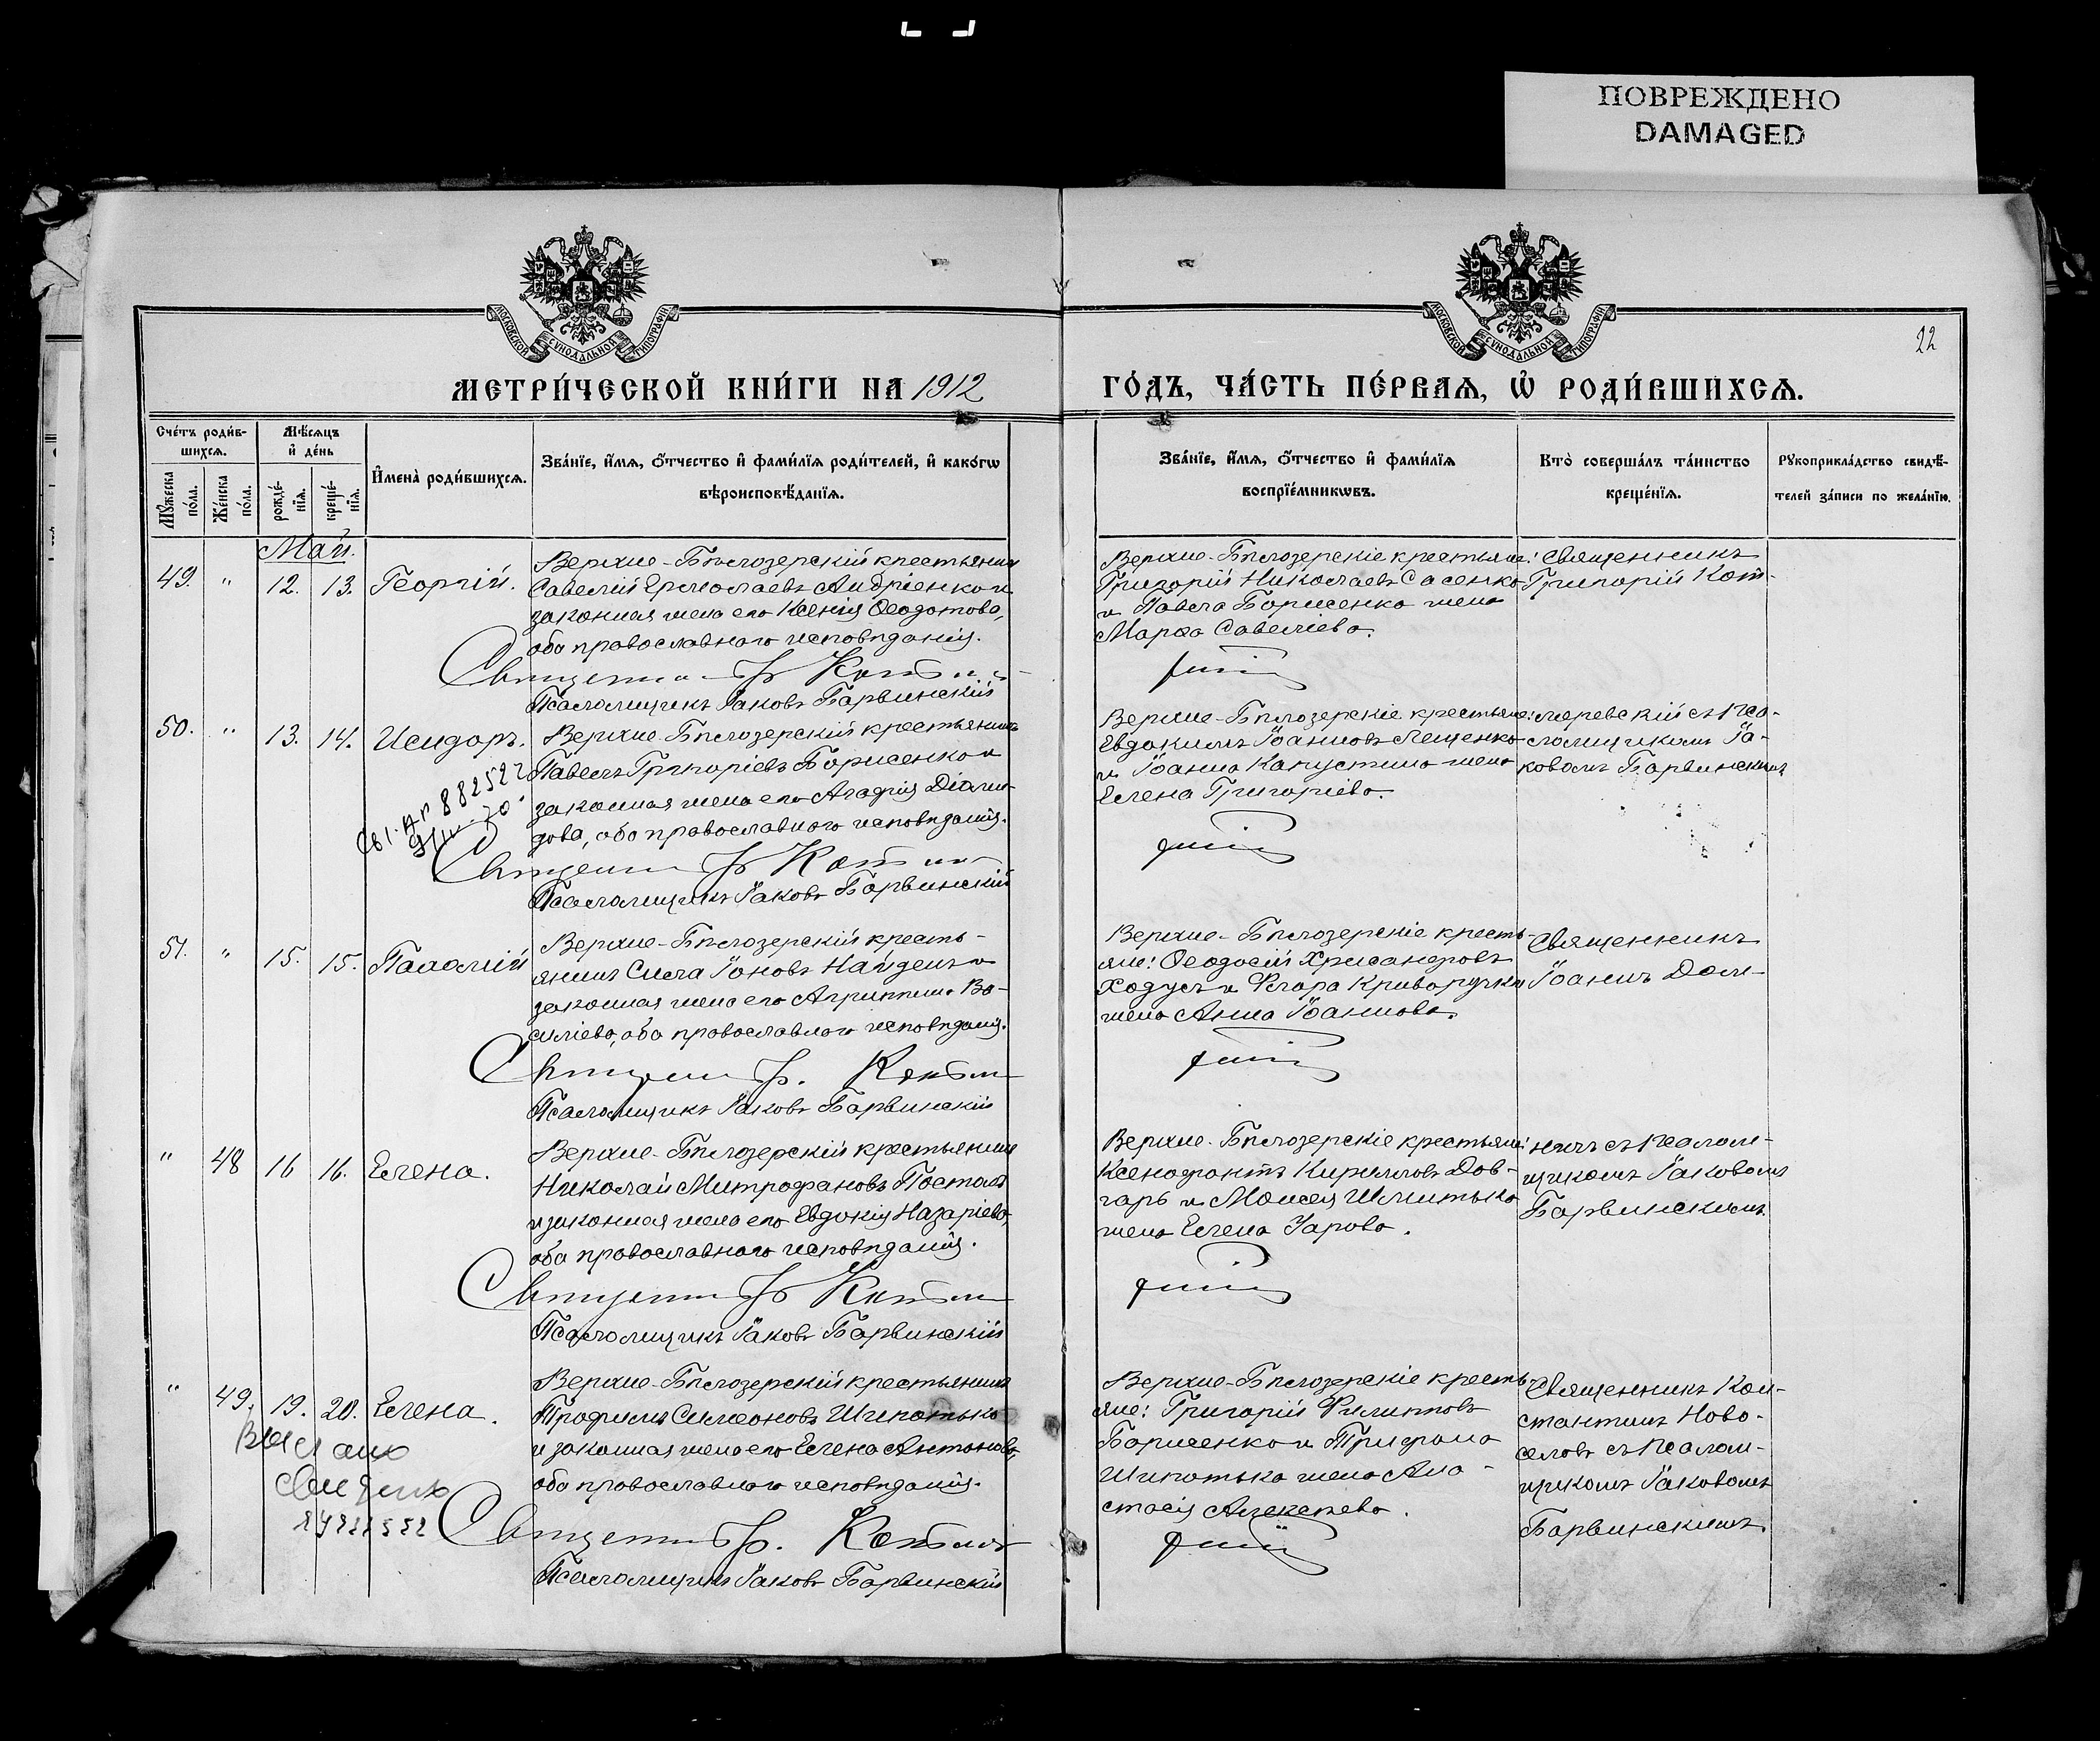 ПОВРЕЖДЕНО
DAMAGED
МОСКОВСКОЙ СѴНОДАЛЬНОЙ ТИПОГРАФІИ
МОСКОВСКОЙ СѴНОДАЛЬНОЙ ТИПОГРАФІИ
22
МЕТРИ́ЧЕСКОЙ КНИ́ГИ НА 1912
ГО́ДЪ, ЧА́СТЬ ПЕ́РВАѦ, Ѡ҆ РОДИ́ВШИХСѦ.
Сче́тъ роди́в-
шихсѧ.
Мѣ́сѧцъ
и҆ де́нь
Мꙋ́жеска по́ла.
Же́нска по́ла.
рожде́-нїѧ.
креще́-нїѧ.
И҆мена̀ роди́вшихсѧ.
Зва́нїе, и҆́мѧ, ѻ҆́тчество и҆ фами́лїѧ роди́телей, и҆ како́гѡ
вѣроисповѣ́данїѧ.
Зва́нїе, и҆́мѧ, ѻ҆́тчество и҆ фами́лїѧ
воспрїе́мникѡвъ.
Кто̀ соверша́лъ та́инство
креще́нїѧ.
Рꙋкоприкла́дство свидѣ́-
телей за́писи по жела́нїю.
Май.
49. " 12. 13. Георгій.
Верхне-Бѣлозерскій крестьянинъ
Савелій Ермолаевъ Андріенко и
законная жена его Ксенія Ѳеодотова,
оба православнаго исповѣданія.
Псаломщикъ Іаковъ Барвинскій
Верхне-Бѣлозерскіе крестьяне:
Григорій Николаевъ Сасенко
и Павла Борисенко жена
Марѳа Савеліева.
Священникъ
Григорій Кот-
50. " 13. 14. Исидоръ.
Верхне-Бѣлозерскій крестьянинъ
Павелъ Григоріевъ Борисенко и
законная жена его Агаѳія Діами-
дова, оба православнаго исповѣданія.
Псаломщикъ Іаковъ Барвинскій
Верхне-Бѣлозерскіе крестьяне:
Евдокимъ Іоанновъ Лещенко
и Іоанна Капустина жена
Елена Григоріева.
ляревскій съ пса-
ломщикомъ Іа-
ковомъ Барвинскимъ
51. " 15. 15.
Верхне-Бѣлозерскій кресть-
янинъ Сила Іоновъ Найденъ и
законная жена его Агриппина Ва-
силіева, оба православнаго исповѣданія.
Псаломщикъ Іаковъ Барвинскій
Верхне-Бѣлозерскіе кресть-
яне: Ѳеодосій Хрисанфовъ
Ходусъ и Флора Криворучки
жена Анна Іоаннова.
Священникъ
Іоаннъ
" 48 16 16. Елена.
Верхне-Бѣлозерскій крестьянинъ
Николай Митрофановъ Посталъ
и законная жена его Евдокія Назаріева,
оба православнаго исповѣданія.
Псаломщикъ Іаковъ Барвинскій
Верхне-Бѣлозерскіе крестьяне:
Ксенофонтъ Кирилловъ Дов-
гарь и Моисея Шмитько
жена Елена Уарова.
съ псалом-
щикомъ Іаковомъ
Барвинскимъ.
" 49. 19. 20. Елена.
Верхне-Бѣлозерскій крестьянинъ
Трофимъ Симеоновъ Шипотько
и законная жена его Елена Антонова,
оба православнаго исповѣданія.
Псаломщикъ Іаковъ Барвинскій
Верхне-Бѣлозерскіе кресть-
яне: Григорій Филипповъ
Борисенко и Трифона
Шипотька жена Ана-
стасія Алексѣева.
Священникъ Кон-
стантинъ Ново-
селовъ съ псалом-
щикомъ Іаковомъ
Барвинскимъ.